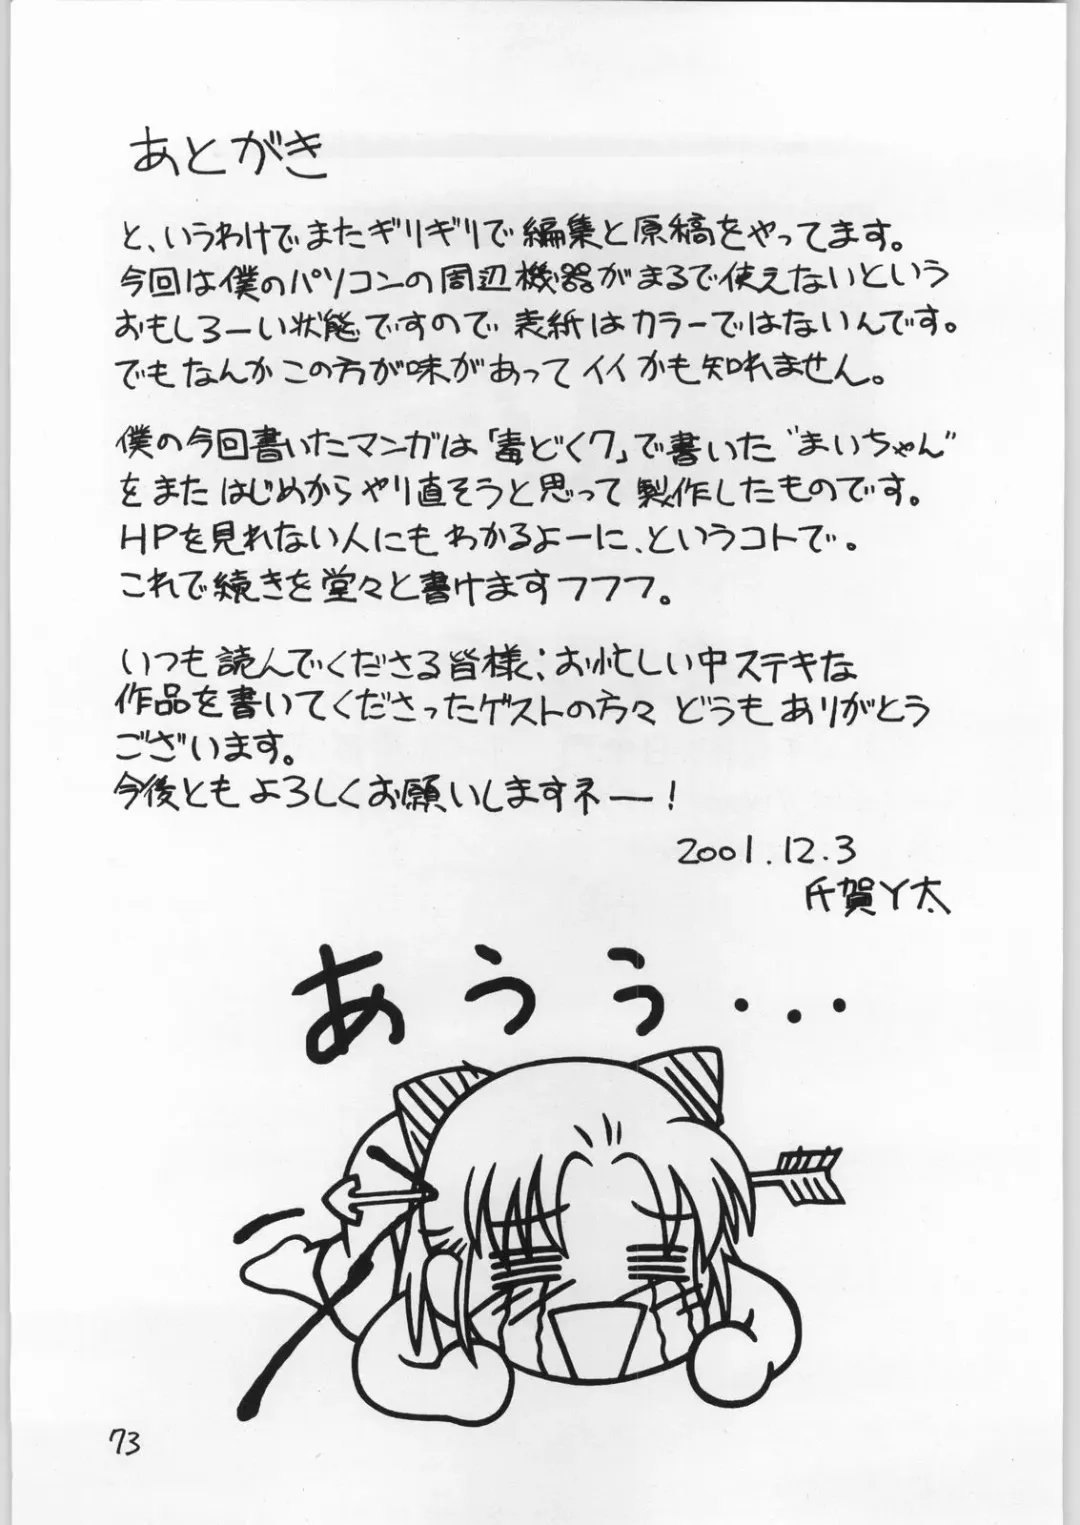 あとがき
と、いうわけでまたギリギリで編集と原稿をやってます。
今回は僕のパソコンの周辺機器がまるで使えないという
おもしろーい状態ですので表紙はカラーではないんです。
でもなんかこの方が味があってイイかも知れません。
僕の今回書いたマンガは「毒どく7」で書いた“まいちゃん”
をまたはじめからやり直そうと思って製作したものです。
HPを見れない人にもわかるよーに、というコトで。
これで続きを堂々と書けますフフフ。
いつも読んでくださる皆様、お忙しい中ステキな
作品を書いてくださったゲストの方々どうもありがとう
ございます。
今後ともよろしくお願いしますネー！
2001.12.3
氏賀Y太
あうぅ・・・
73